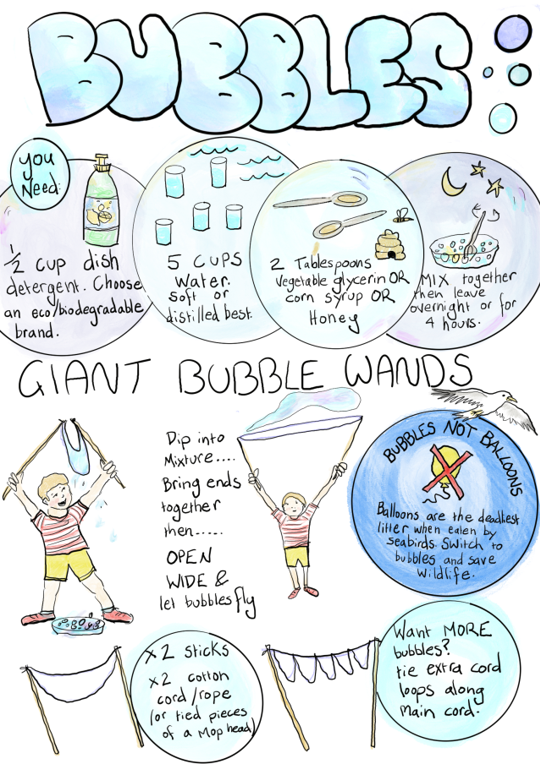 BUBBLES
you
Need:
1/2 cup dish
detergent. Choose
an eco/biodegradable
brand.
5 CUPS
Water.
Soft or
distilled best.
2 Tablespoons
Vegetable glycerin OR
corn syrup OR
Honey
MIX together
then leave
overnight or for
4 hours.
GIANT BUBBLE WANDS
Dip into
Mixture....
Bring ends
together
then.....
OPEN
WIDE &
let bubbles fly
BUBBLES NOT BALLOONS
Balloons are the deadliest
litter when eaten by
seabirds. Switch to
bubbles and save
wildlife.
x2 sticks
x2 cotton
cord/rope
(or tied pieces
of a Mop head)
Want MORE
bubbles?
tie extra cord
loops along
main cord.